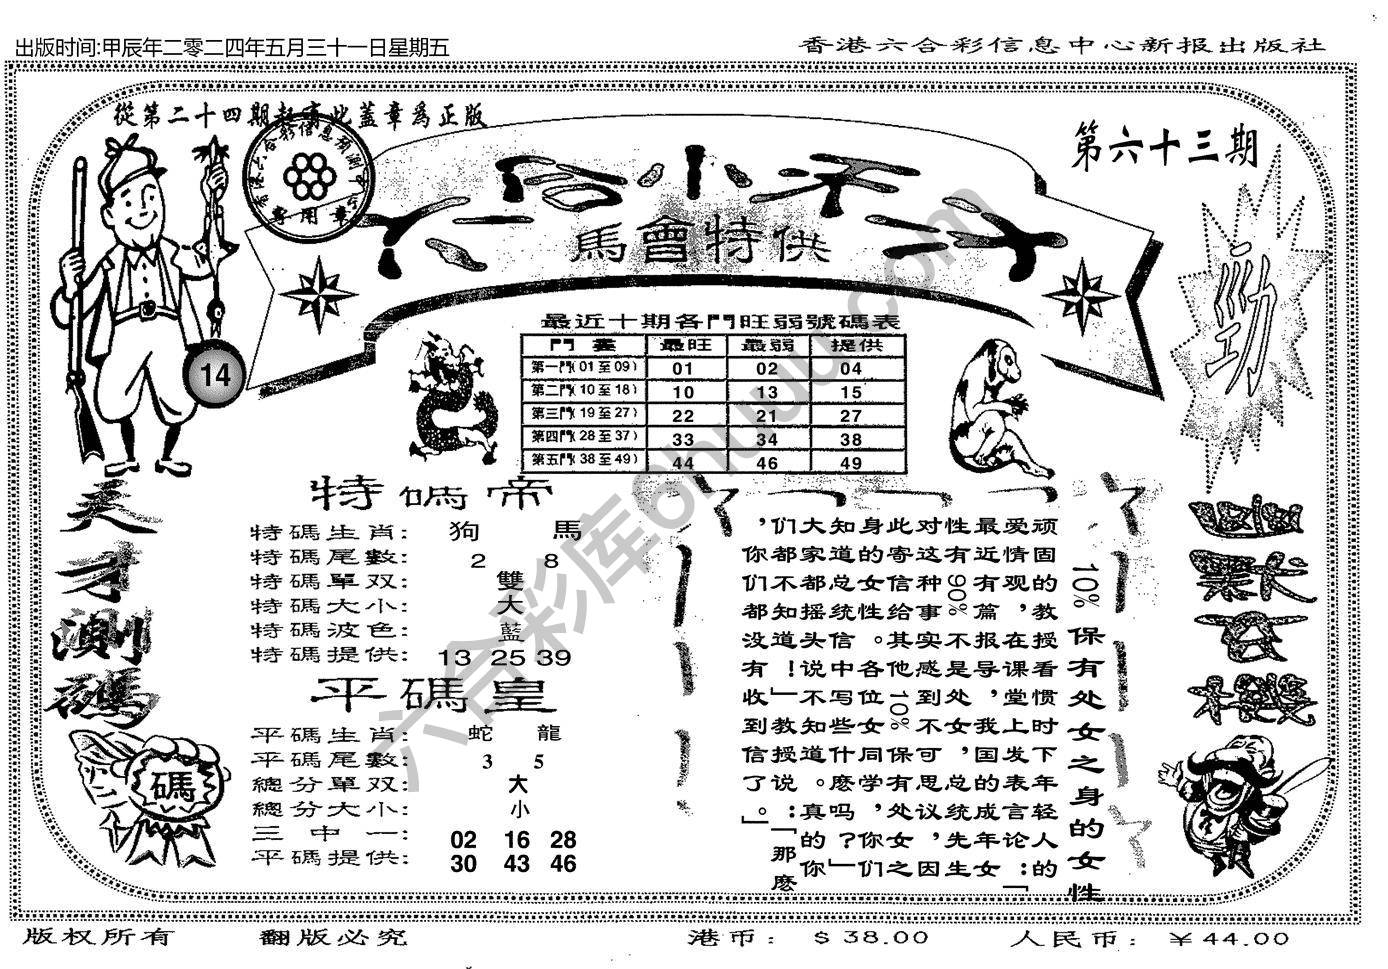 出版时间:甲辰年二零二四年五月三十一日星期五
香港六合彩信息中心新报出版社
從第二十四期起蓋此蓋章為正版
第六十三期
馬會特供
勁
14
最近十期各門旺弱號碼表
門 最旺 最弱 提供
第一門(01至09) 01 02 04
第二門(10至18) 10 13 15
第三門(19至27) 22 21 27
第四門(28至37) 33 34 38
第五門(38至49) 44 46 49
天才測碼
特碼帝
特碼生肖: 狗 馬
特碼尾數: 2 8
特碼單双: 雙
特碼大小: 大
特碼波色: 藍
特碼提供: 13 25 39
平碼皇
平碼生肖: 蛇 龍
平碼尾數: 3 5
總分單双: 大
總分大小: 小
三中一: 02 16 28
平碼提供: 30 43 46
碼
10%保有处女之身的女性
顽固的教授看惯时下年轻人的
爱情观,在课堂上发表言论:「
最近有篇报导,我国的成年女
性有90%不是处女,总统先生
对这种事实感到不可思议,因
此寄信给其他10%保有处女之
身的女性。各位女同学,你们
知道总统信中写些什麽吗?」
大家都摇头说不知道。真的
们都不知道!」教授说:「那麽
,你们都没有收到信了。」
六合彩库6huuu.com
版权所有
翻版必究
港币: $38.00
人民币: ￥44.00